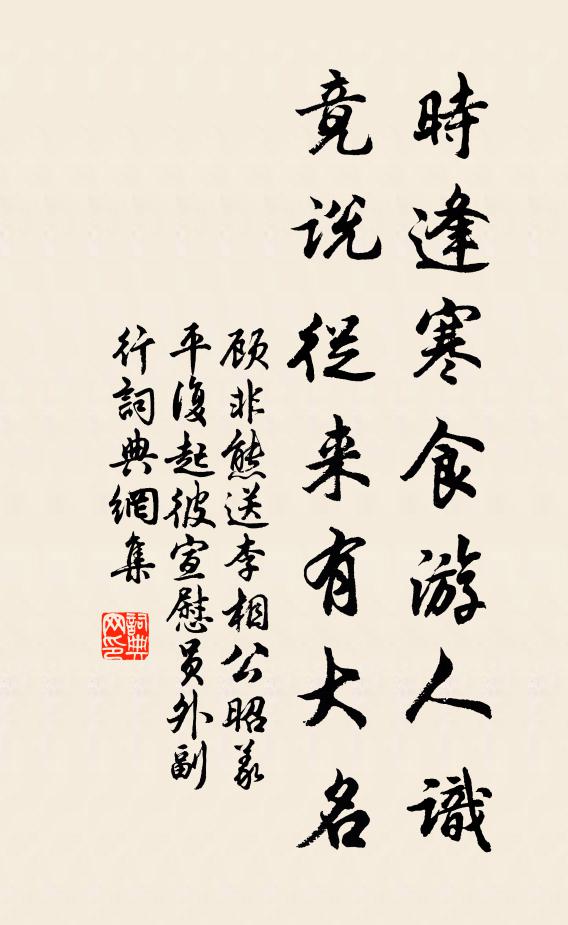 時逢寒食游人識
竟说從来有大名
顾非熊送李相公昭义
平復起彼宣慰员外副
行詞典網集
詞典
网印